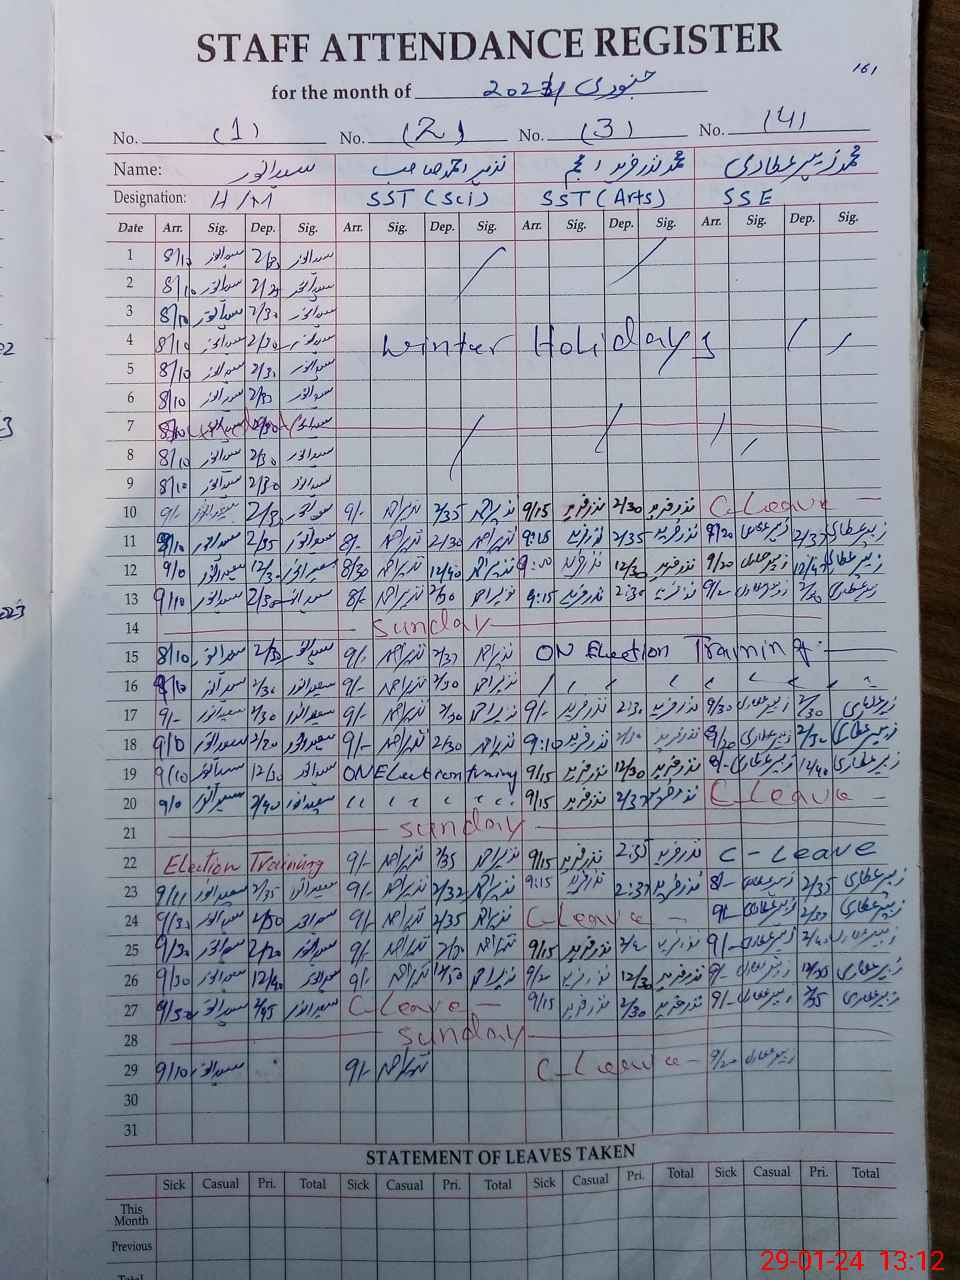 STAFF ATTENDANCE REGISTER
161
for the month of جنوری 2024
No. (1) No. (2) No. (3) No. (4)
Name: سعید انور نذیر احمد صاحب محمد نذر فرید انجم محمد زبیر عطاری
Designation: H/M SST (Sci) SST (Arts) SSE
Date Arr. Sig. Dep. Sig. Arr. Sig. Dep. Sig. Arr. Sig. Dep. Sig. Arr. Sig. Dep. Sig.
1 8/10 سعید انور سعید انور
2 8/10 سعید انور سعید انور
3 8/10 سعید انور 2/30 سعید انور
4 8/10 سعید انور 2/30 سعید انور Winter Holidays
5 8/10 سعید انور سعید انور
6 8/10 سعید انور سعید انور
7
8 8/10 سعید انور 2/30 سعید انور
9 8/10 سعید انور 2/30 سعید انور
10 9/- سعید انور سعید انور 9/- نذیر احمد 2/35 نذیر احمد 9/15 نذر فرید 2/30 نذر فرید C-Leave
11 سعید انور 2/35 سعید انور 8/- نذیر احمد 2/30 نذیر احمد 9:15 نذر فرید 2/35 نذر فرید زبیر عطاری زبیر عطاری
12 سعید انور سعید انور 8/30 نذیر احمد 12/40 نذیر احمد نذر فرید 12/30 نذر فرید 9/20 زبیر عطاری
13 9/10 سعید انور 2/30 سعید انور 8/- نذیر احمد نذیر احمد 9:15 نذر فرید 2:30 نذر فرید 9/- زبیر عطاری زبیر عطاری
14 Sunday
15 8/10 سعید انور سعید انور 9/- نذیر احمد نذیر احمد ON Election Training
16 سعید انور 2/30 سعید انور 9/- نذیر احمد 2/30 نذیر احمد
17 9/- سعید انور 2/30 سعید انور 9/- نذیر احمد نذیر احمد 9/- نذر فرید 2:30 نذر فرید 9/30 زبیر عطاری 2/30 زبیر عطاری
18 سعید انور سعید انور 9/- نذیر احمد 2/30 نذیر احمد 9:10 نذر فرید نذر فرید زبیر عطاری زبیر عطاری
19 9/10 سعید انور 12/30 سعید انور ON Election training 9/15 نذر فرید 12/30 نذر فرید زبیر عطاری 12/40 زبیر عطاری
20 سعید انور 2/40 سعید انور 9/15 نذر فرید نذر فرید C Leave
21 Sunday
22 Election Training 9/- نذیر احمد 2/35 نذیر احمد 9/15 نذر فرید 2:35 نذر فرید C-Leave
23 9/11 سعید انور 2/35 سعید انور 9/- نذیر احمد 2/32 نذیر احمد 9:15 نذر فرید نذر فرید 8/- زبیر عطاری 2/35 زبیر عطاری
24 سعید انور سعید انور 9/- نذیر احمد 2/35 نذیر احمد C-Leave 9/- زبیر عطاری زبیر عطاری
25 9/30 سعید انور سعید انور 9/- نذیر احمد نذیر احمد 9/15 نذر فرید نذر فرید 9/- زبیر عطاری 2/40 زبیر عطاری
26 9/30 سعید انور سعید انور 9/- نذیر احمد نذیر احمد نذر فرید 12/30 نذر فرید 9/- زبیر عطاری زبیر عطاری
27 9/50 سعید انور 2/45 سعید انور C Leave 9/15 نذر فرید 2/30 نذر فرید 9/- زبیر عطاری 2/35 زبیر عطاری
28 Sunday
29 9/10 سعید انور 9/- نذیر احمد C-Leave 9/20 زبیر عطاری
30
31
STATEMENT OF LEAVES TAKEN
Sick Casual Pri. Total Sick Casual Pri. Total Sick Casual Pri. Total Sick Casual Pri. Total
This Month
Previous
Total
29-01-24 13:12